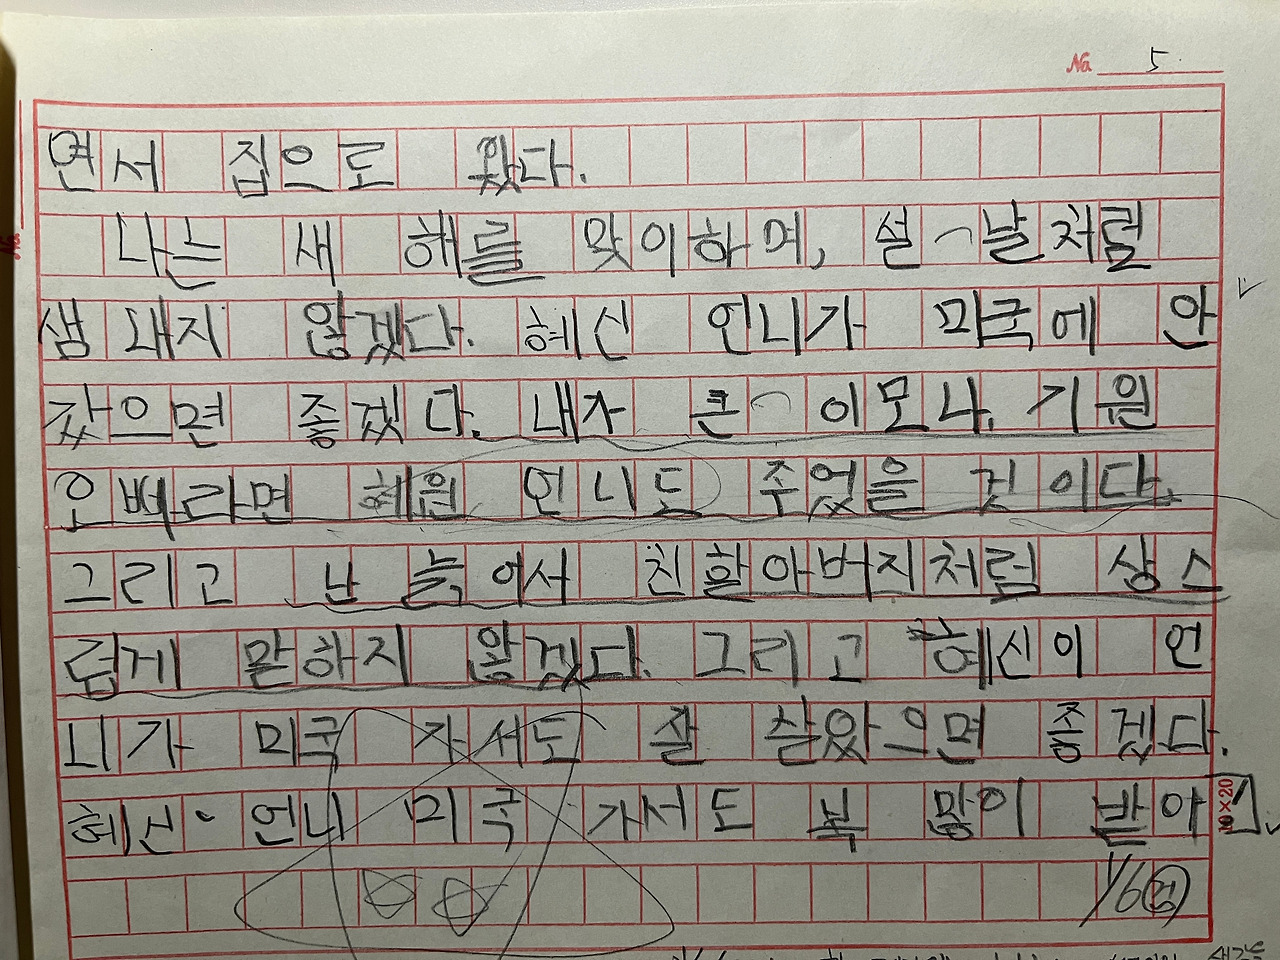 No 5
면서 집으로 왔다.
나는 새 해를 맞이하며, 설날처럼
샘 내지 않겠다. 혜신 언니가 미국에 안
갔으면 좋겠다. 내가 큰이모나. 기원
오빠라면 혜원 언니도 주었을 것이다.
그리고 난 늙어서 친할아버지처럼 상스
럽게 말하지 않겠다. 그리고 혜신이 언
니가 미국 가서도 잘 살았으면 좋겠다.
혜신 언니 미국 가서도 복 많이 받아
10×20
1/6 검